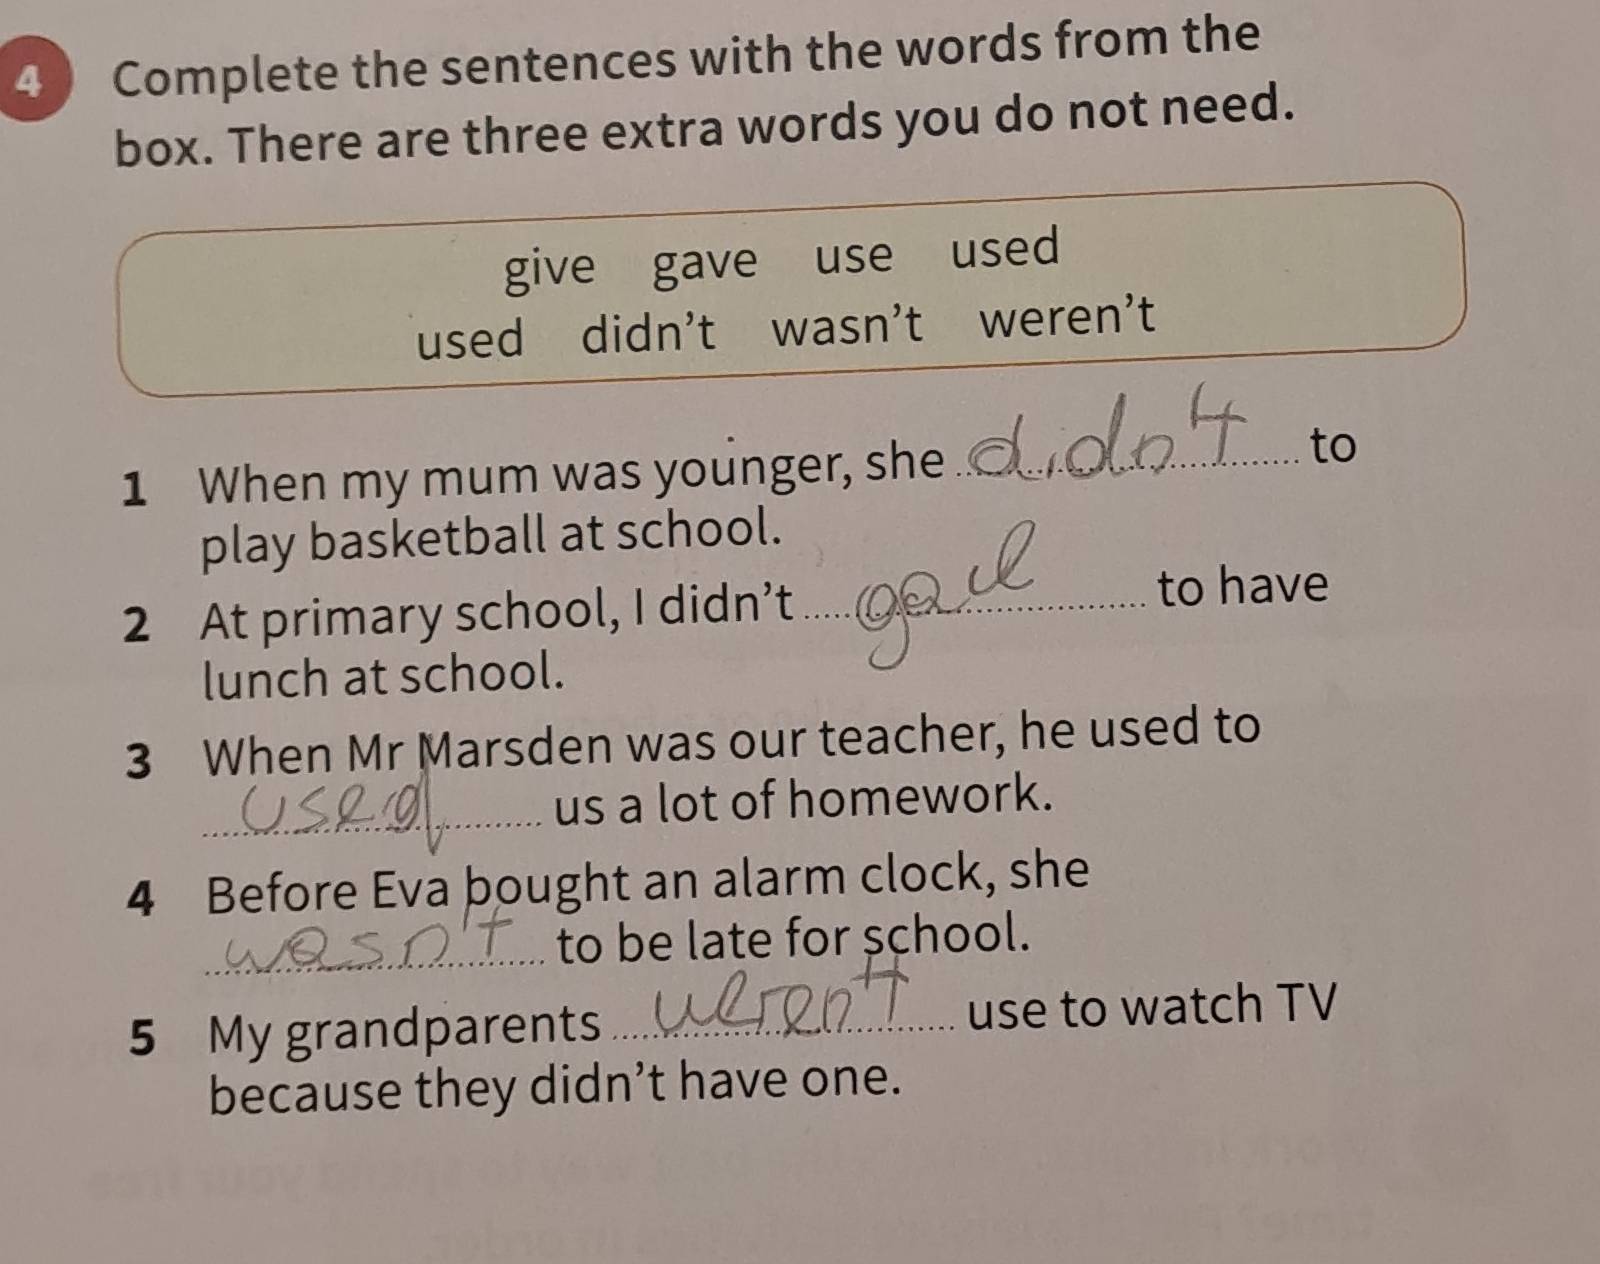 4 Complete the sentences with the words from the
box. There are three extra words you do not need.
give gave use used
used didn't wasn't weren't
1 When my mum was younger, she didn't to
play basketball at school.
2 At primary school, I didn't gave to have
lunch at school.
3 When Mr Marsden was our teacher, he used to
used us a lot of homework.
4 Before Eva bought an alarm clock, she
wasn't to be late for school.
5 My grandparents weren't use to watch TV
because they didn't have one.